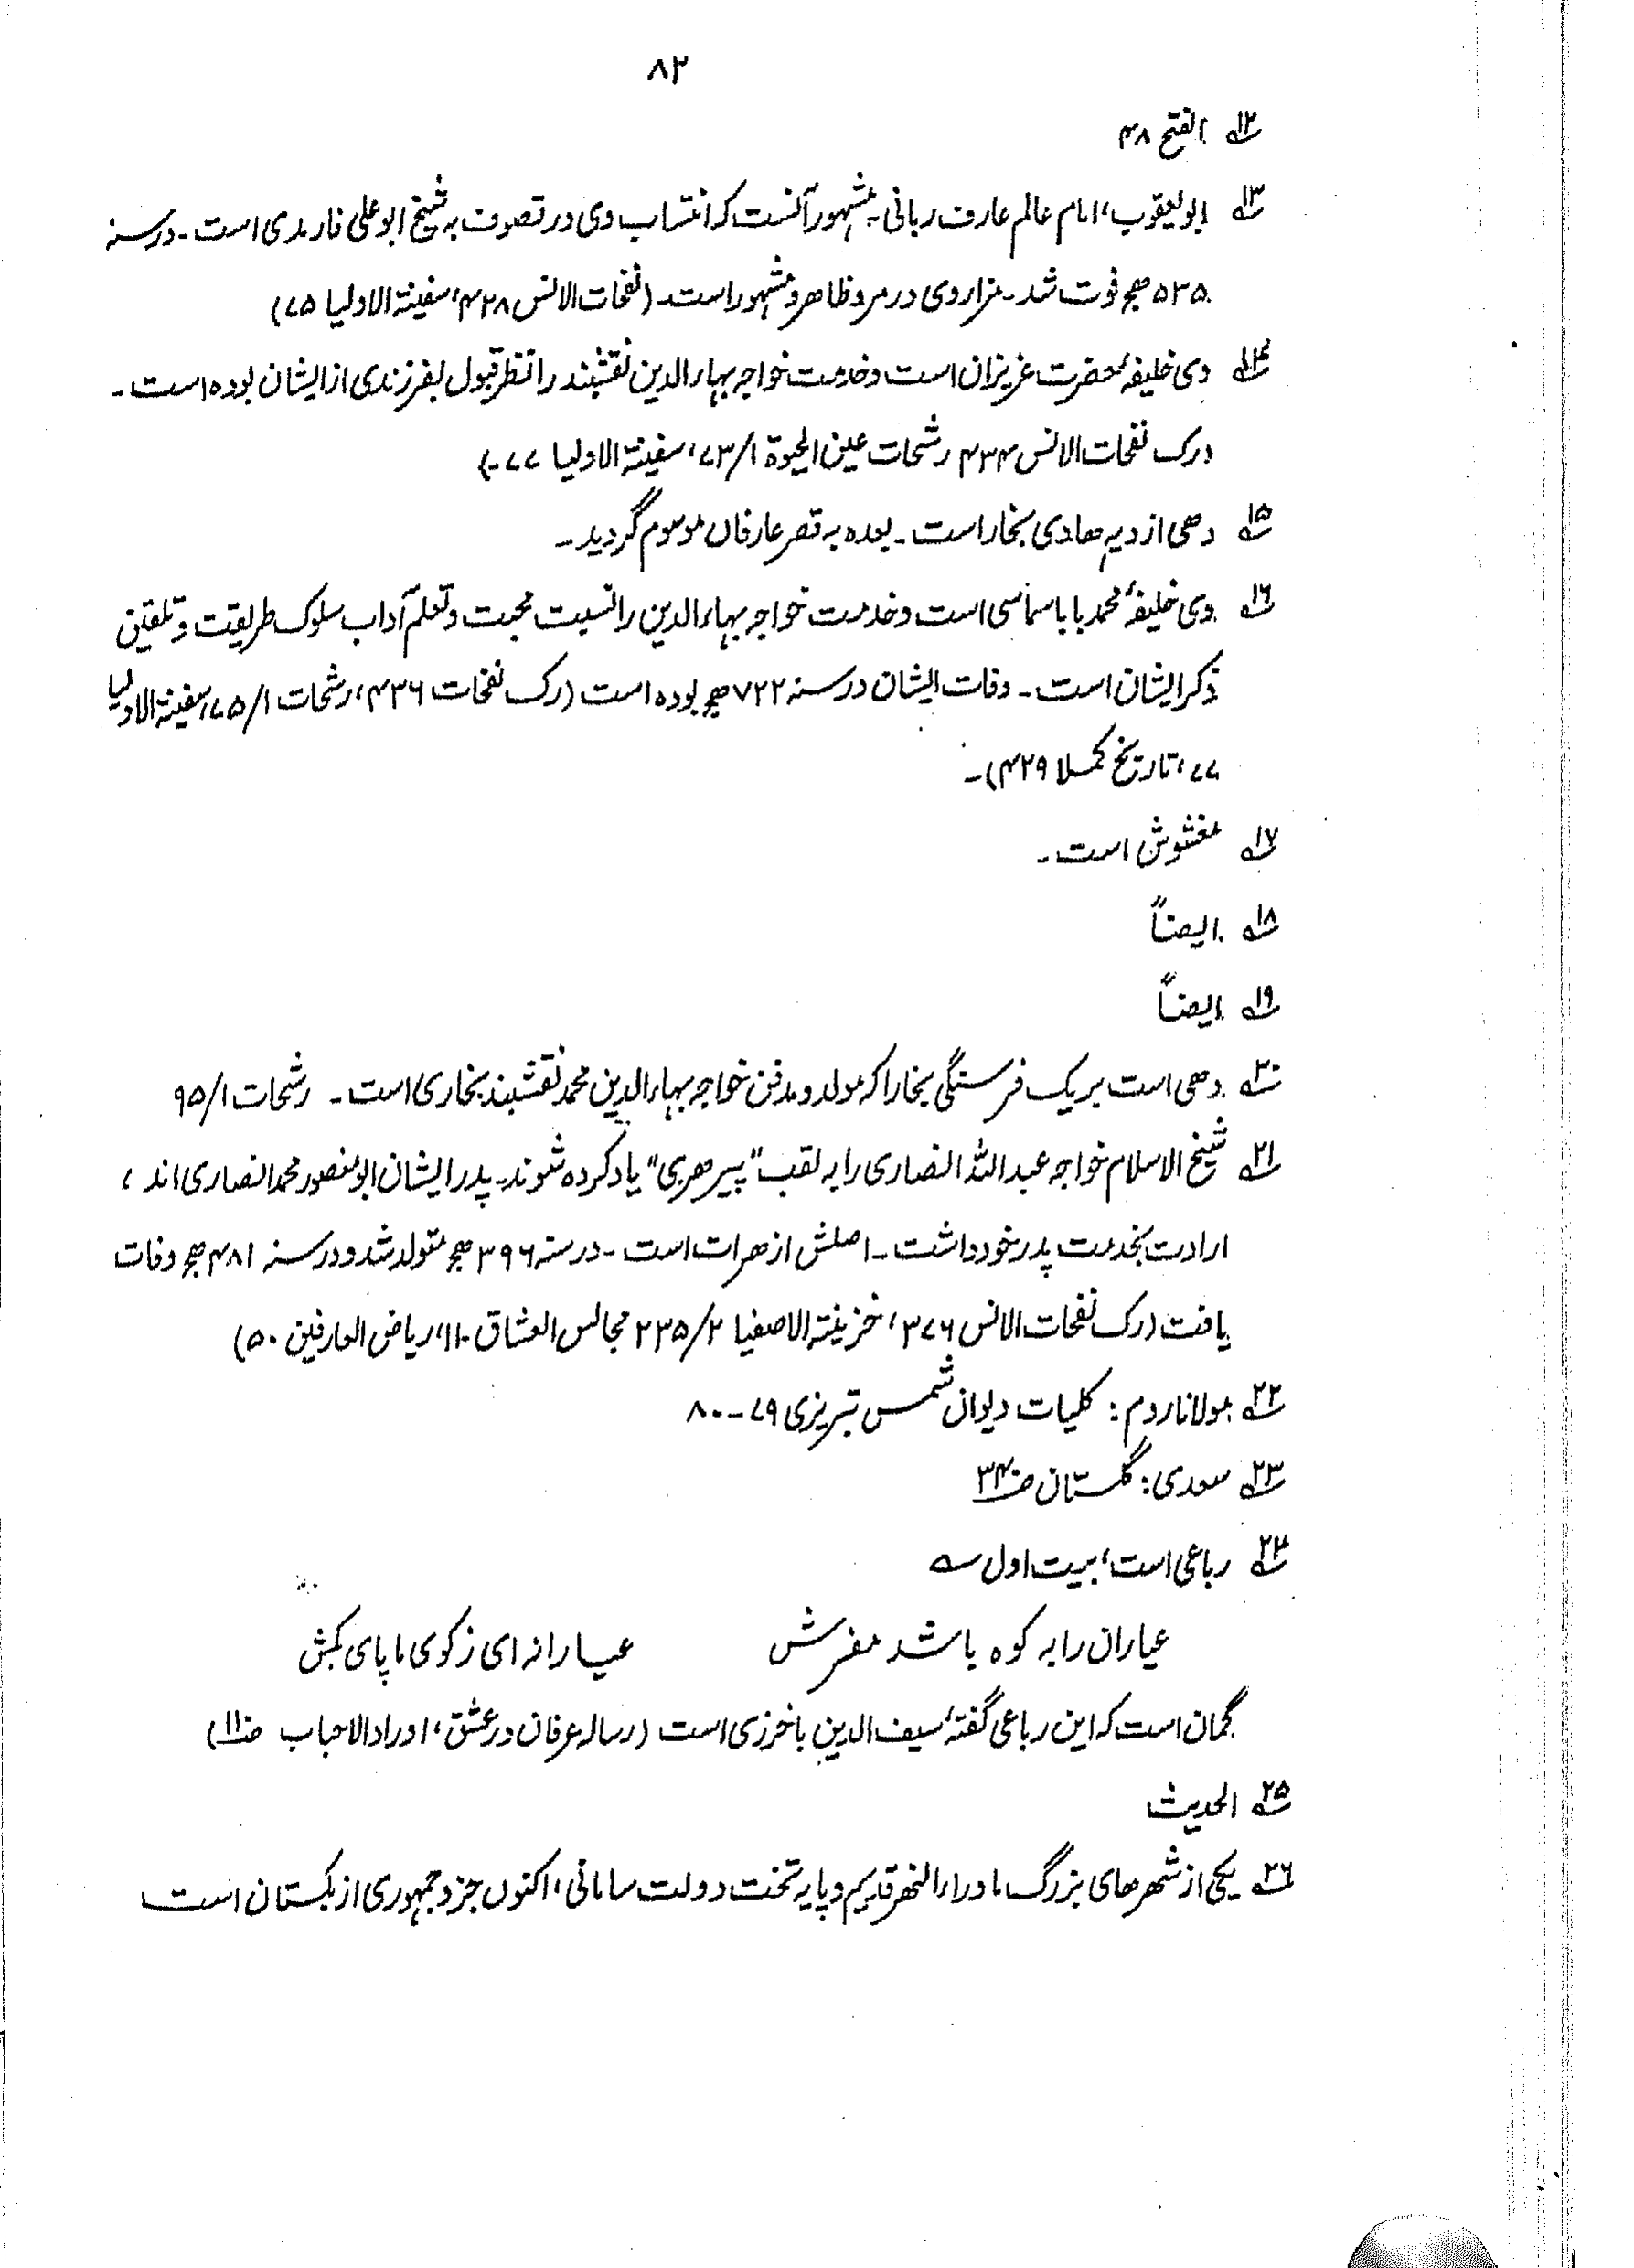 ۸۲
۱۲ الفتح ۴۸
۱۳ ابو یعقوب، امام عالم عارف ربانی۔ مشهور آنست که انتساب وی در تصوف به شیخ ابو علی فارمدی است۔ در سنه
۵۳۵ هج فوت شد۔ مزار وی در مرو ظاهر و مشهور است۔ (نفحات الانس ۴۲۸، سفینة الاولیا ۷۵)
۱۴ وی خلیفهٔ حضرت عزیزان است و خدمت خواجه بهاء الدین نقشبند را نظر قبول بفرزندی از ایشان بوده است۔
(رک نفحات الانس ۴۳۴ رشحات عین الحیوة ۱/۷۳، سفینة الاولیا ۷۷)
۱۵ دهی از دیه های بخارا است۔ بعده به قصر عارفان موسوم گردید۔
۱۶ وی خلیفهٔ محمد بابا سماسی است و خدمت خواجه بهاء الدین را نسبت محبت و تعلم آداب سلوک طریقت و تلقین
ذکر ایشان است۔ وفات ایشان در سنه ۷۲۲ هج بوده است (رک نفحات ۴۳۶، رشحات ۱/۷۵، سفینة الاولیا
۷۷، تاریخ کملا ۴۲۹)۔
۱۷ مغشوش است۔
۱۸ ایضاً
۱۹ ایضاً
۲۰ دهی است بر یک فرسنگی بخارا که مولد و مدفن خواجه بهاء الدین محمد نقشبند بخاری است۔ رشحات ۱/۹۵
۲۱ شیخ الاسلام خواجه عبد الله انصاری را به لقب "پیر هری" یاد کرده شوند۔ پدر ایشان ابو منصور محمد انصاری اند،
ارادت بخدمت پدر خود داشت۔ اصلش از هرات است۔ در سنه ۳۹۶ هج متولد شد و در سنه ۴۸۱ هج وفات
یافت (رک نفحات الانس ۳۷۶، خزینة الاصفیا ۲/۲۳۵ مجالس العشاق ۱۱۰، ریاض العارفین ۵۰)
۲۲ مولانا روم: کلیات دیوان شمس تبریزی ۷۹-۸۰
۲۳ سعدی: گلستان ص ۳۴
۲۴ رباعی است، بیت اول ؎
عیاران را به کوه باشد مفرش عیار نه‌ای ز کوی ما پای بکش
گمان است که این رباعی گفتهٔ سیف الدین باخرزی است (رساله عرفان در عشق، اوراد الاحباب ص ۱۱)
۲۵ الحدیث
۲۶ یکی از شهرهای بزرگ ماوراء النهر قدیم و پایه تخت دولت سامانی، اکنون جزو جمهوری ازبکستان است